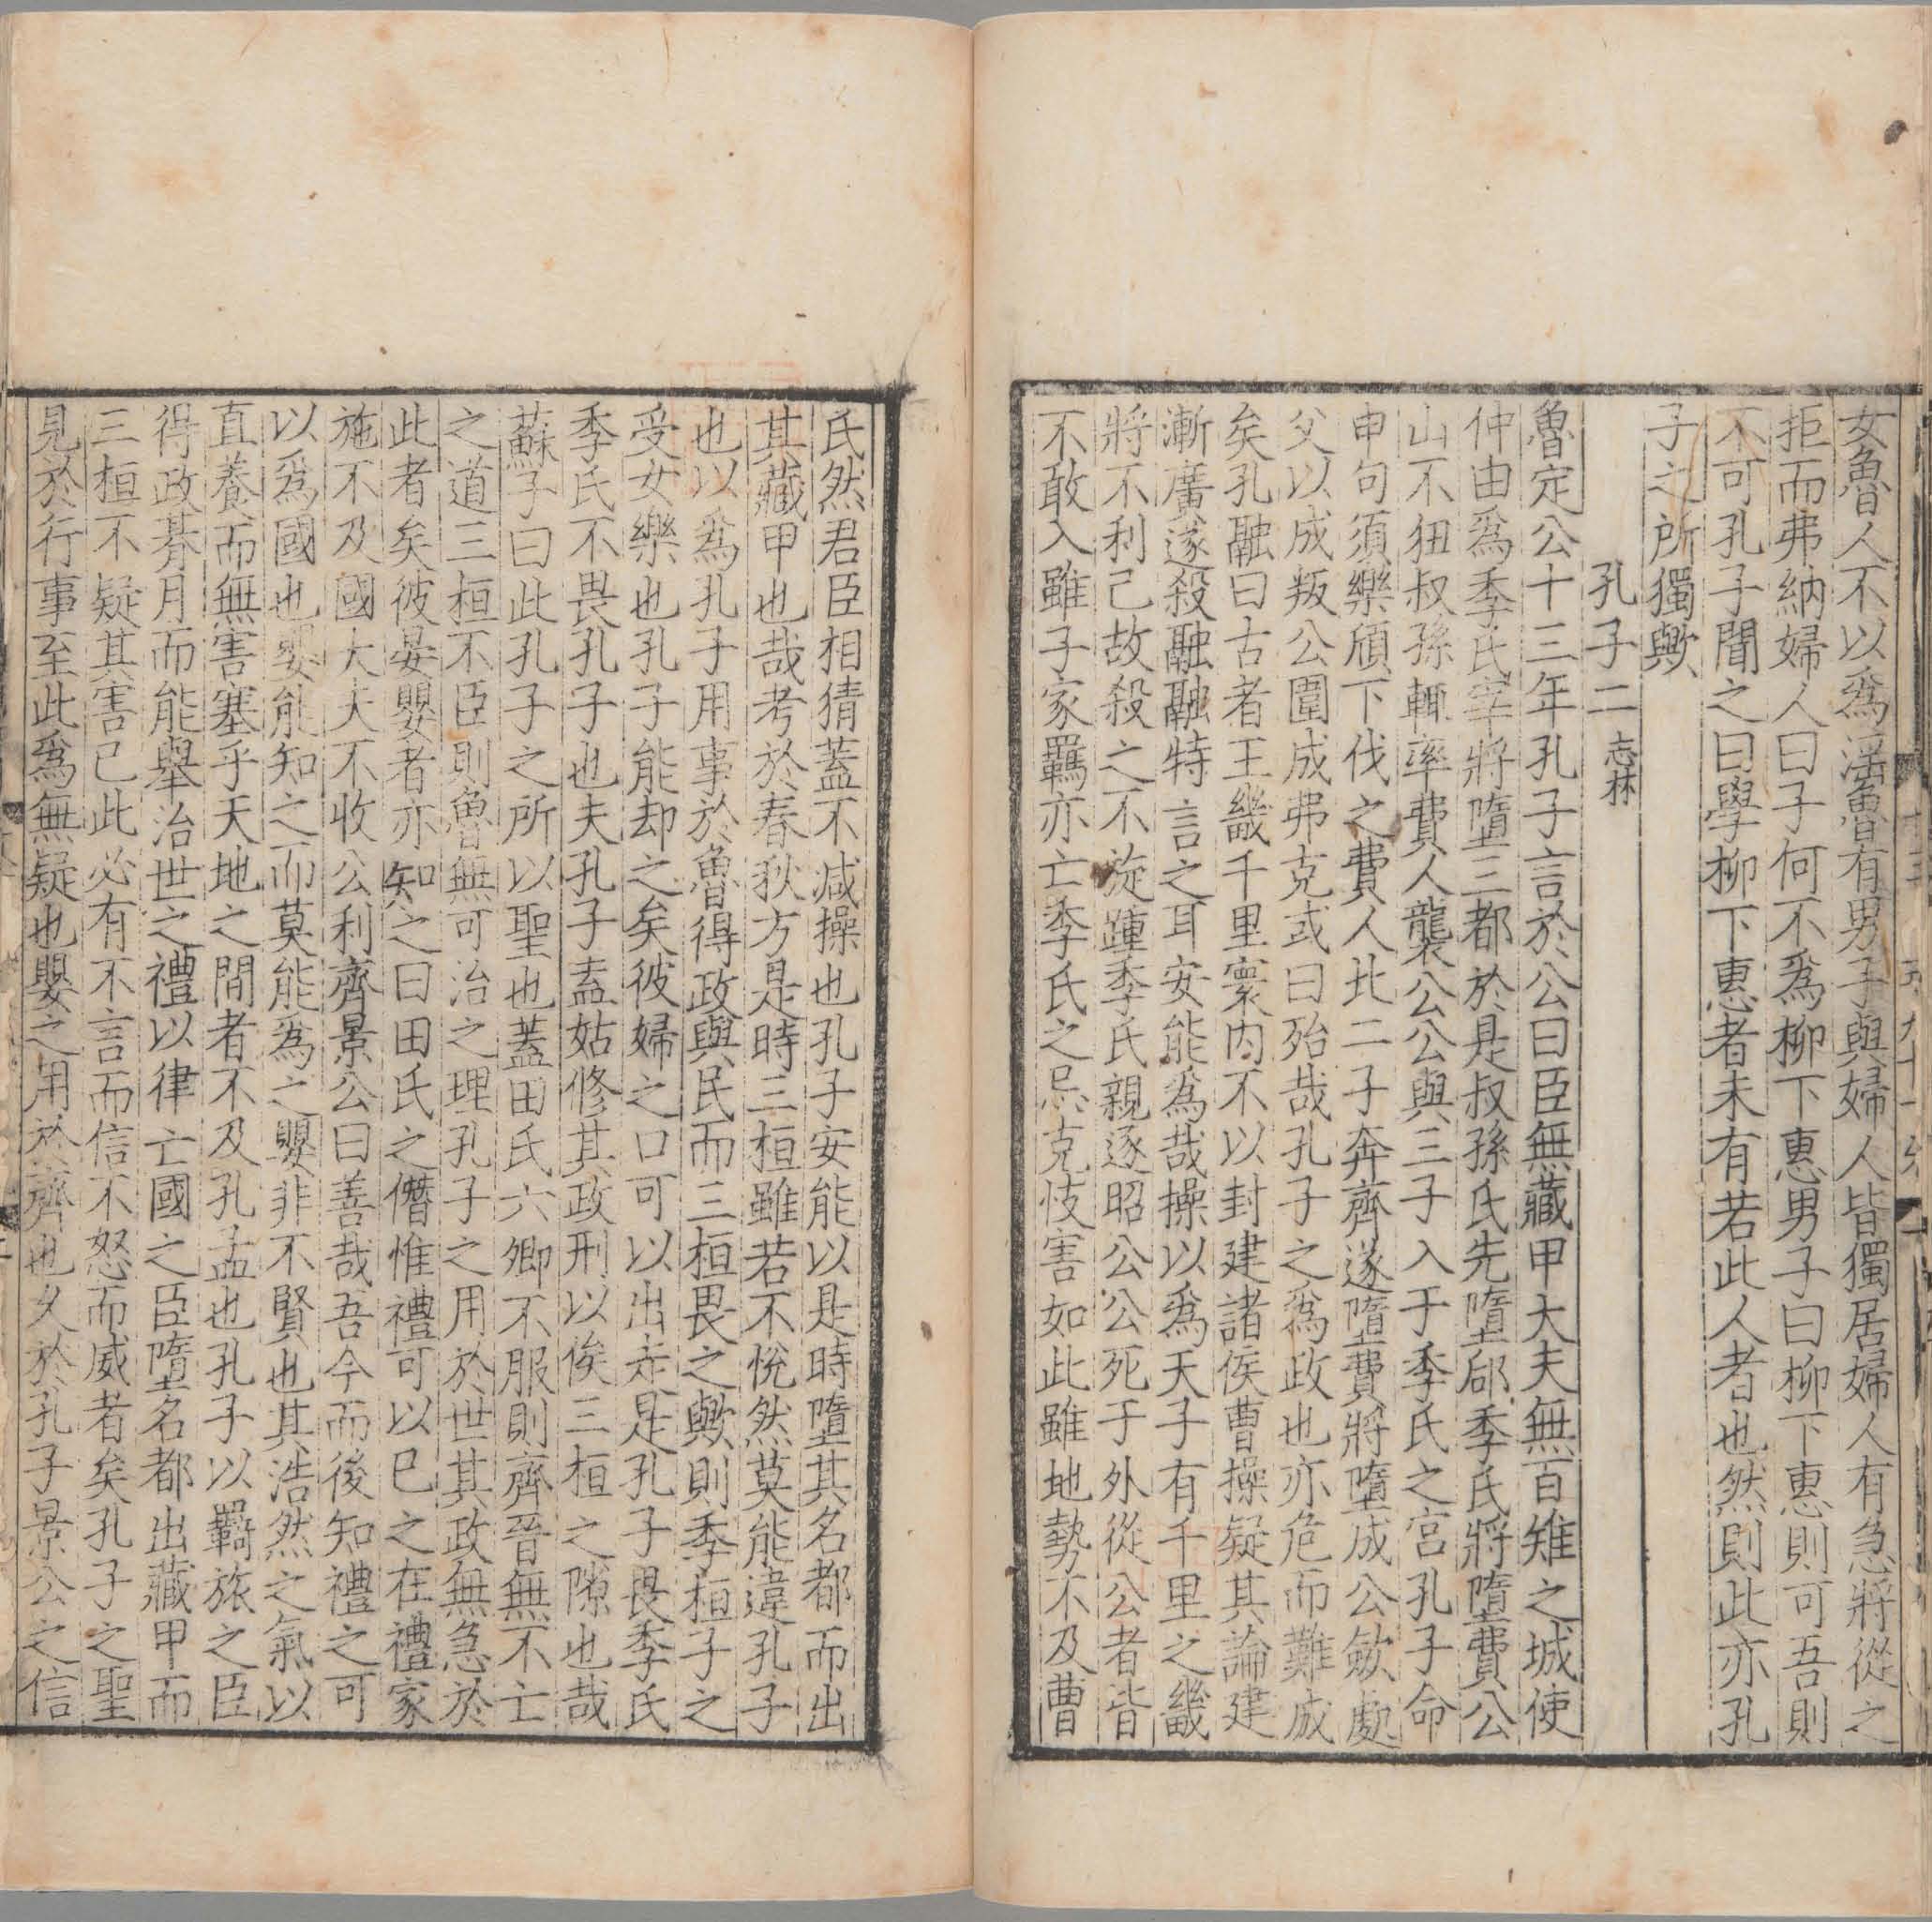 女魯人不以爲淫魯有男子與婦人皆獨居婦人有急將從之
拒而弗納婦人曰子何不爲柳下惠男子曰柳下惠則可吾則
不可孔子聞之曰學柳下惠者未有若此人者也然則此亦孔
子之所獨歟
孔子二 志林
魯定公十三年孔子言於公曰臣無藏甲大夫無百雉之城使
仲由爲季氏宰將墮三都於是叔孫氏先墮郈季氏將墮費公
山不狃叔孫輒率費人襲公公與三子入于季氏之宮孔子命
申句須樂頎下伐之費人北二子奔齊遂墮費將墮成公斂處
父以成叛公圍成弗克或曰殆哉孔子之爲政也亦危而難成
矣孔融曰古者王畿千里寰內不以封建諸侯曹操疑其論建
漸廣遂殺融融特言之耳安能爲哉操以爲天子有千里之畿
將不利己故殺之不旋踵季氏親逐昭公公死于外從公者皆
不敢入雖子家羈亦亡季氏之忌克忮害如此雖地勢不及曹
氏然君臣相猜蓋不減操也孔子安能以是時墮其名都而出
其藏甲也哉考於春秋方是時三桓雖若不悅然莫能違孔子
也以爲孔子用事於魯得政與民而三桓畏之歟則季桓子之
受女樂也孔子能却之矣彼婦之口可以出走是孔子畏季氏
季氏不畏孔子也夫孔子盍姑修其政刑以俟三桓之隙也哉
蘇子曰此孔子之所以聖也蓋田氏六卿不服則齊晉無不亡
之道三桓不臣則魯無可治之理孔子之用於世其政無急於
此者矣彼晏嬰者亦知之曰田氏之僭惟禮可以已之在禮家
施不及國大夫不收公利齊景公曰善哉吾今而後知禮之可
以爲國也嬰能知之而莫能爲之嬰非不賢也其浩然之氣以
直養而無害塞乎天地之間者不及孔孟也孔子以羇旅之臣
得政朞月而能舉治世之禮以律亡國之臣墮名都出藏甲而
三桓不疑其害己此必有不言而信不怒而威者矣孔子之聖
見於行事至此爲無疑也嬰之用於齊也久於孔子景公之信